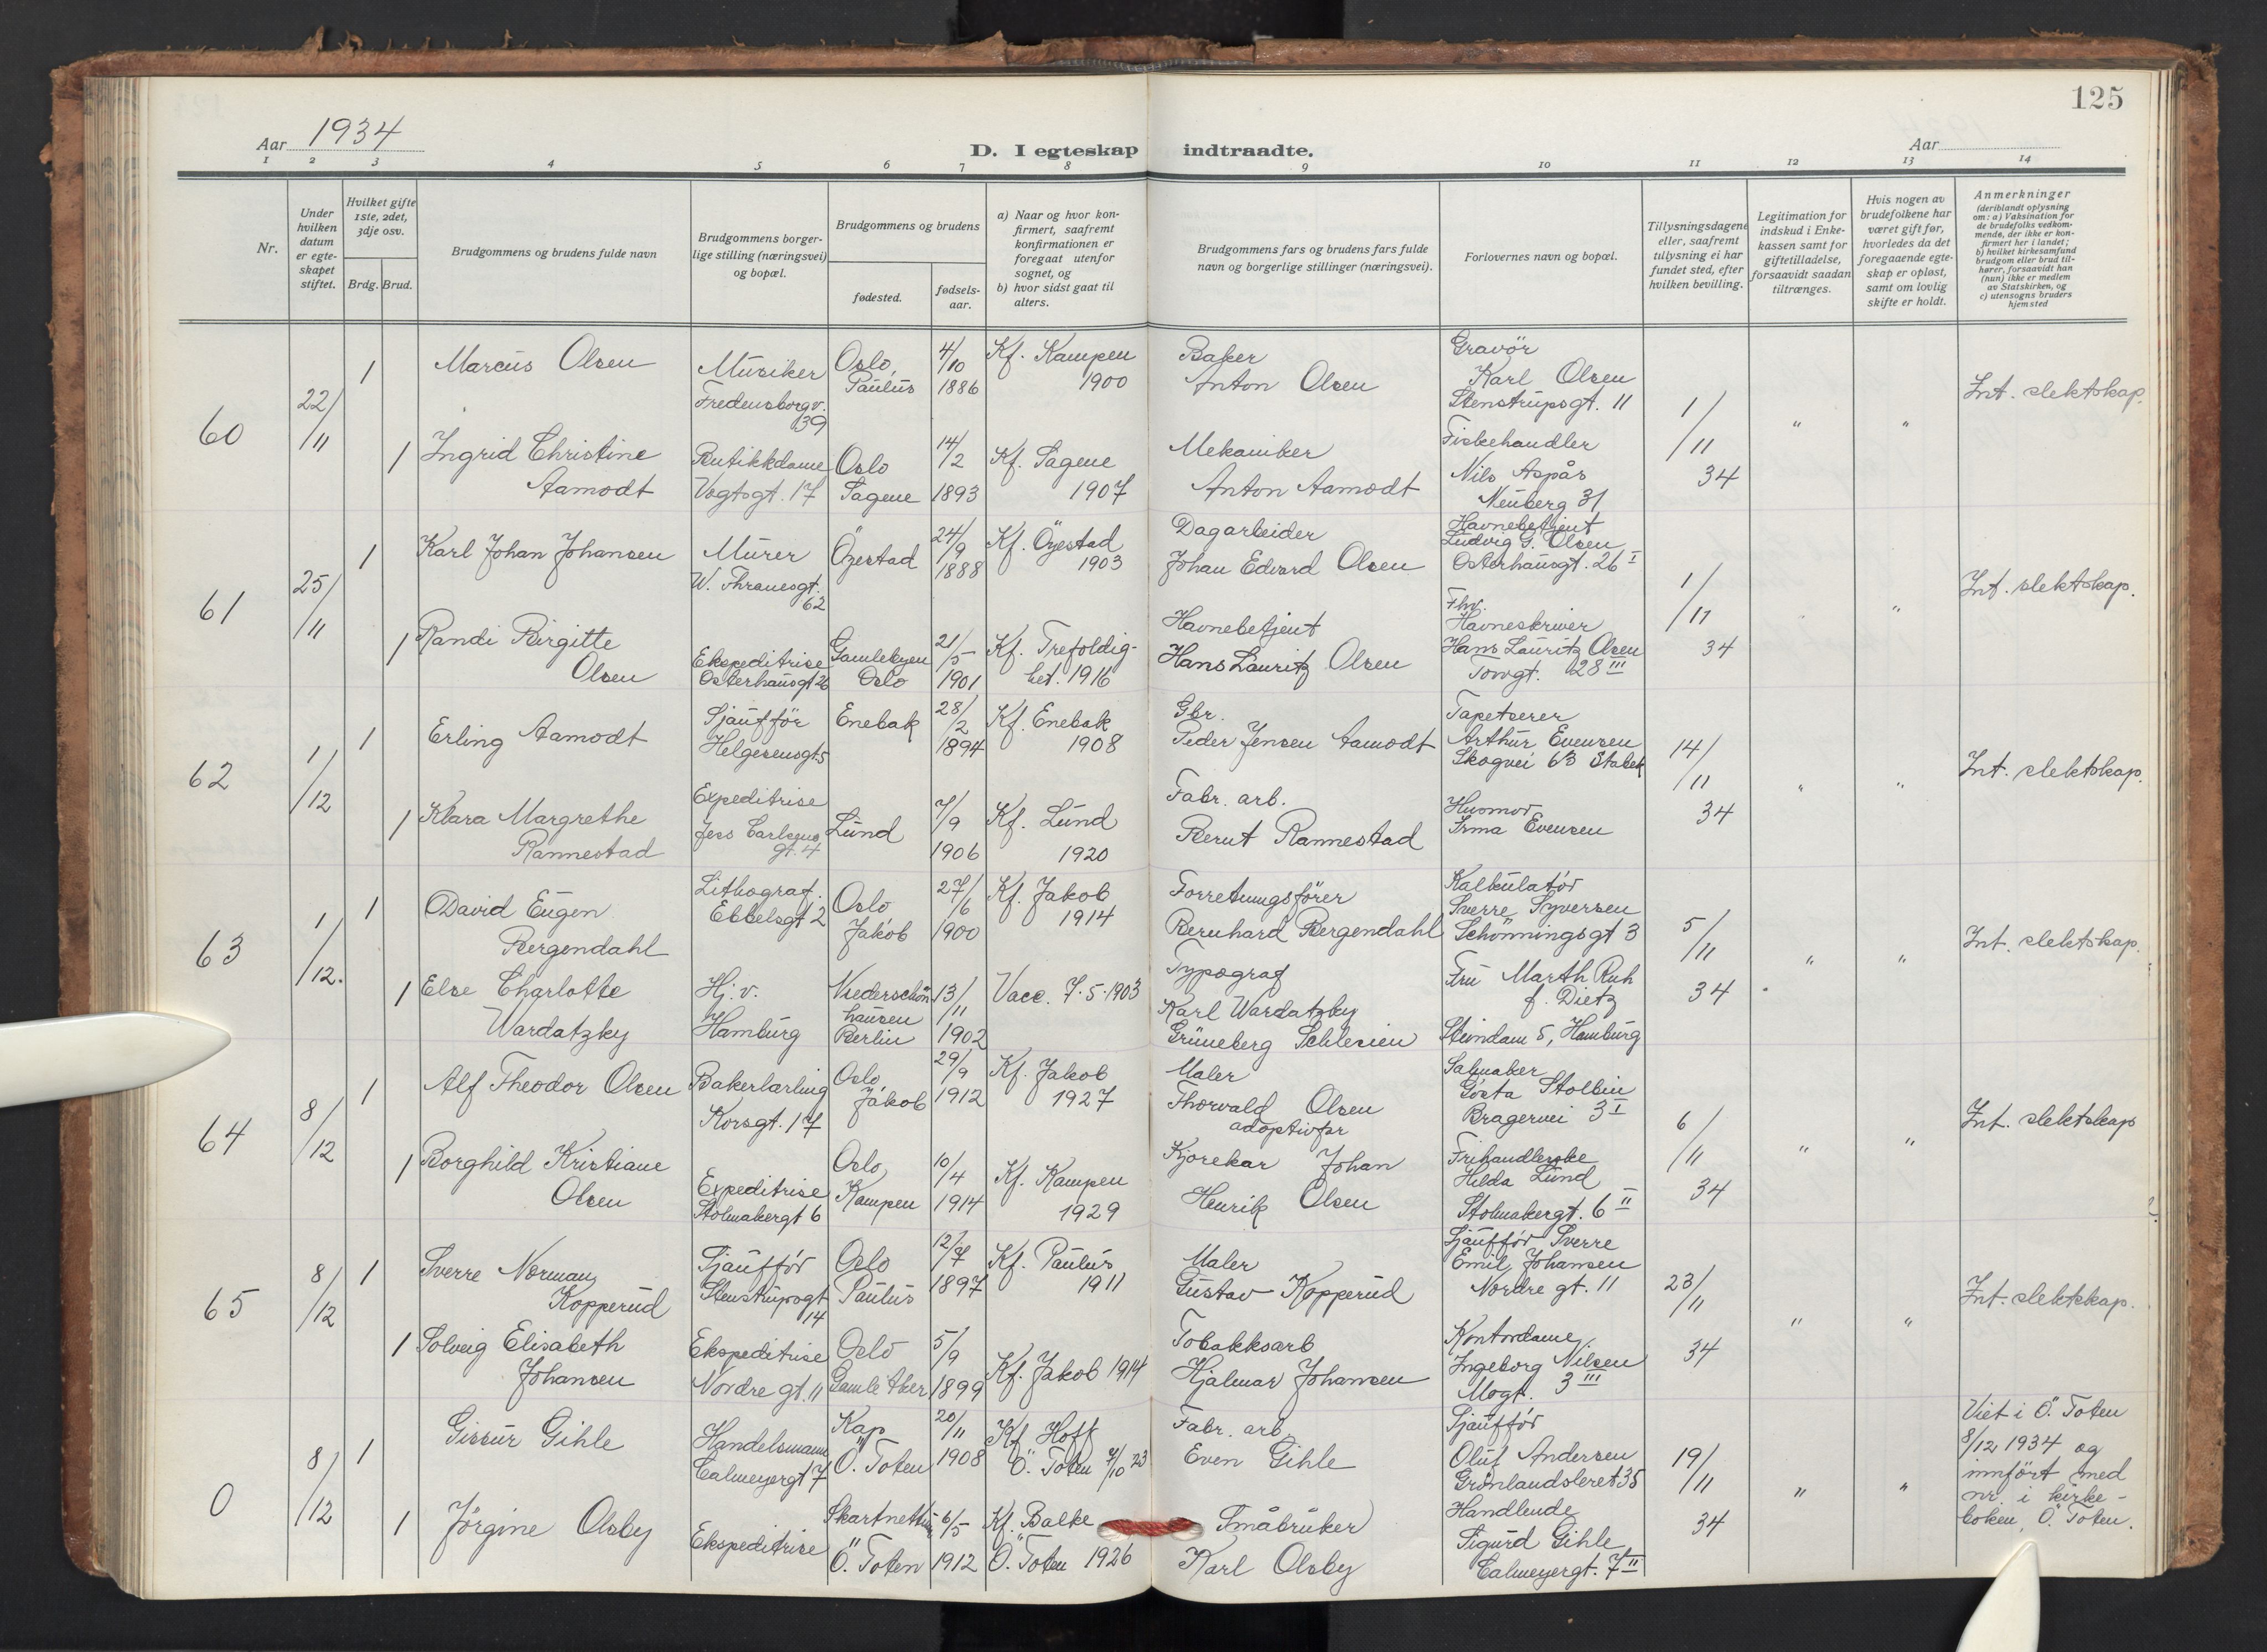 125
Aar 1934
D. I egteskap indtraadte.
Aar
1 2 3 4 5 6 7 8 9 10 11 12 13 14
Nr.
Under hvilken datum er egteskapet stiftet.
Hvilket gifte 1ste, 2det, 3dje osv.
Brdg. Brud.
Brudgommens og brudens fulde navn
Brudgommens borgerlige stilling (næringsvei) og bopæl.
Brudgommens og brudens
fødested.
fødselsaar.
a) Naar og hvor konfirmert, saafremt konfirmationen er foregaat utenfor sognet, og
b) hvor sidst gaat til alters.
Brudgommens fars og brudens fars fulde navn og borgerlige stillinger (næringsvei).
Forlovernes navn og bopæl.
Tillysningsdagene eller, saafremt tillysning ei har fundet sted, efter hvilken bevilling.
Legitimation for indskud i Enkekassen samt for giftetilladelse, forsaavidt saadan tiltrænges.
Hvis nogen av brudefolkene har været gift før, hvorledes da det foregaaende egteskap er opløst, samt om lovlig skifte er holdt.
Anmerkninger
(deriblandt oplysning om: a) Vaksination for de brudefolks vedkommende, der ikke er konfirmert her i landet; b) hvilket kirkesamfund brudgom eller brud tilhører, forsaavidt han (hun) ikke er medlem av Statskirken, og c) utensogns bruders hjemsted
60 22/11 1 Marcus Olsen
Musiker Fredensborgv. 39
Oslo, Paulus 4/10 1886
Kf. Kampen 1900
Baker Anton Olsen
Gravör Karl Olsen Stenstrupsgt. 11
1/11 34 " "
Int. slektskap.
1 Ingrid Christine Aamodt
Butikkdame Vogtsgt. 17
Oslo Sagene 14/2 1893
Kf. Sagene 1907
Mekaniker Anton Aamodt
Fiskehandler Nils Aspås Neuberg 31
61 25/11 1 Karl Johan Johansen
Murer W. Thranesgt. 62
Öyestad 24/9 1888
Kf. Öyestad 1903
Dagarbeider Johan Edvard Olsen
Havnebetjent Ludvig G. Olsen Osterhausgt. 26 I
1/11 34 "
Int. slektskap.
1 Randi Birgitte Olsen
Ekspeditrise Osterhausgt 26
Gamlebyen Oslo 21/5 1901
Kf. Trefoldighet. 1916
Havnebetjent Hans Lauritz Olsen
Fhv. Havneskriver Hans Lauritz Olsen Torvgt. 28 III
62 1/12 1 Erling Aamodt
Sjaufför Helgesensgt 5
Enebak 28/2 1894
Kf. Enebak 1908
Gbr. Peder Jensen Aamodt
Tapetserer Arthur Evensen Skogvei 63 Stabek
14/11 34 " "
Int. slektskap.
1 Klara Margrethe Rannestad
Expeditrise Jess Carlsensgt. 4
Lund 7/9 1906
Kf. Lund 1920
Fabr. arb. Bernt Rannestad
Husmor Irma Evensen
63 1/12. 1 David Eugen Bergendahl
Lithograf. Ebbelsgt 2
Oslo Jakob 27/6 1900
Kf. Jakob 1914
Forretningsförer Bernhard Bergendahl
Kalkulatör Sverre Syversen Schönningsgt 3
5/11 34 " "
Int. slektskap.
1 Else Charlotte Wardatzky
Hj. v. Hamburg
Niederschönhausen Berlin 13/11 1902
Vacc. 7-5-1903
Typograf Karl Wardatzky Grüneberg Schlesien
Fru Marth Ruh f. Dietz Steindam 5, Hamburg
64 8/12 1 Alf Theodor Olsen
Bakerlærling Korsgt. 17
Oslo Jakob 29/9 1912
Kf. Jakob 1927
Maler Thorvald Olsen adoptivfar
Salmaker Gösta Stolbin Bragervei 3 I
6/11 34 " "
Int. slektskap
1 Borghild Kristiane Olsen
Expeditrise Stolmakergt 6
Oslo, Kampen 10/4 1914
Kf. Kampen 1929
Kjörekar Johan Henrik Olsen
Frihandlerske Hilda Lund Stolmakergt. 6 II
65 8/12 1 Sverre Norman Kopperud
Sjaufför Stenstrupsgt 14
Oslo Paulus 12/7 1897
Kf. Paulus 1911
Maler Gustav Kopperud
Sjaufför Sverre Emil Johansen Nordre gt. 11
23/11 34 " "
Int. slektskap.
1 Solveig Elisabeth Johansen
Ekspeditrise Nordre gt. 11
Oslo Gamle Aker 5/9 1899
Kf. Jakob 1914
Tobakksarb Hjalmar Johansen
Kontordame Ingeborg Nilsen Mogt. 3 III
0 8/12 1 Gissur Gihle
Handelsmann Calmeyergt 7
Kap Ö. Toten 20/11 1908
Kf Hoff Ö. Toten 7/10 23
Fabr. arb. Even Gihle
Sjaufför Oluf Andersen Grönlandsleret 35
19/11 34 " "
Viet i Ö. Toten 8/12 1934 og innfört med nr. i kirkeboken, Ö. Toten.
1 Jörgine Olsby
Ekspeditrise
Ö. Toten 6/5 1912
Kf. Balke Ö. Toten 1926
Småbruker Karl Olsby
Handlende Sigurd Gihle Calmeyergt. 7 II